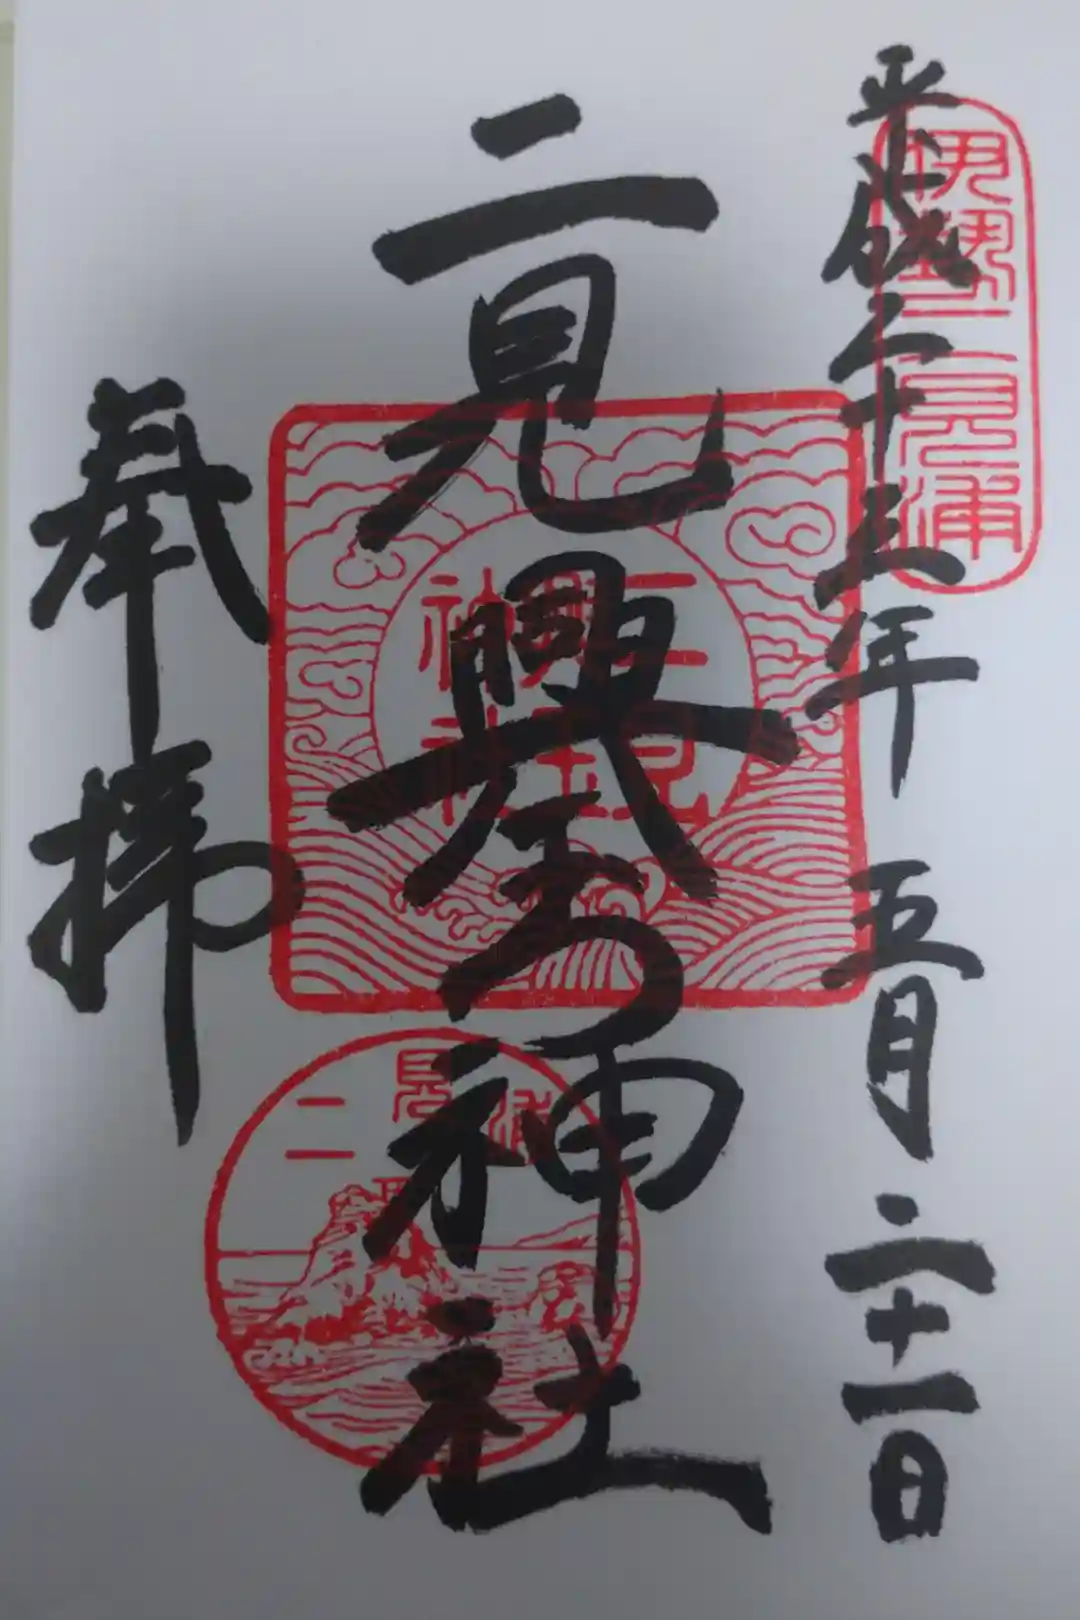 平成二十三年 五月 二十一日
伊勢二見浦
二見興玉神社
二見
興玉
神社
奉拝
二見浦